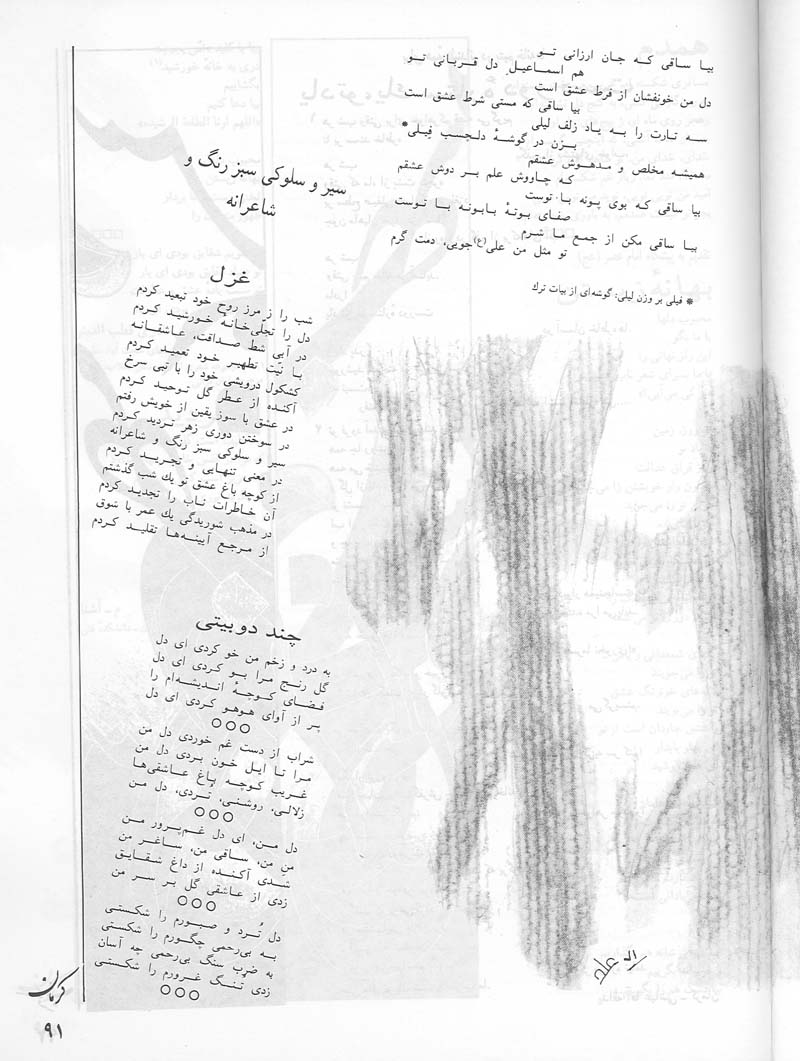 بیا ساقی که جان ارزانی تو
هم اسماعیلِ دل قربانی تو
دل من خونفشان از فرط عشق است
بیا ساقی که مستی شرط عشق است
سه تارت را به یاد زلف لیلی
بزن در گوشهٔ دلچسب فیلی*
همیشه مخلص و مدهوش عشقم
که چاووش علم بر دوش عشقم
بیا ساقی که بوی پونه با توست
صفای بوتهٔ بابونه با توست
بیا ساقی مکن از جمع ما شرم
تو مثل من علی(ع)جویی، دمت گرم
* فیلی بر وزن لیلی: گوشه‌ای از بیات ترك
سیر و سلوکی سبز رنگ و
شاعرانه
غزل
شب را ز مرز روح خود تبعید کردم
دل را تجلّی‌خانهٔ خورشید کردم
در آبی شط صداقت، عاشقانه
با نیّت تطهیر خود تعمید کردم
کشکول درویشی خود را با تبی سرخ
آکنده از عطر گل توحید کردم
در عشق با سوز یقین از خویش رفتم
در سوختن دوری زهر تردید کردم
سیر و سلوکی سبز رنگ و شاعرانه
در معنی تنهایی و تجرید کردم
از کوچه باغ عشق تو یك شب گذشتم
آن خاطرات ناب را تجدید کردم
در مذهب شوریدگی یك عمر با شوق
از مرجع آیینه‌ها تقلید کردم
چند دوبیتی
به درد و زخم من خو کردی ای دل
گل رنج مرا بو کردی ای دل
فضای کوچهٔ اندیشه‌ام را
پر از آوای هوهو کردی ای دل
○○○
شراب از دست غم خوردی دل من
مرا تا ایل خون بردی دل من
غریب کوچه باغ عاشقی‌ها
زلالی، روشنی، تُردی، دل من
○○○
دل من، ای دل غم‌پرور من
منِ من، ساقی من، ساغر من
شدی آکنده از داغ شقایق
زدی از عاشقی گل بر سر من
○○○
دل تُرد و صبورم را شکستی
به بی‌رحمی چگورم را شکستی
به ضرب سنگ بی‌رحمی چه آسان
زدی تُنگ غرورم را شکستی
○○○
کرمان
۹۱